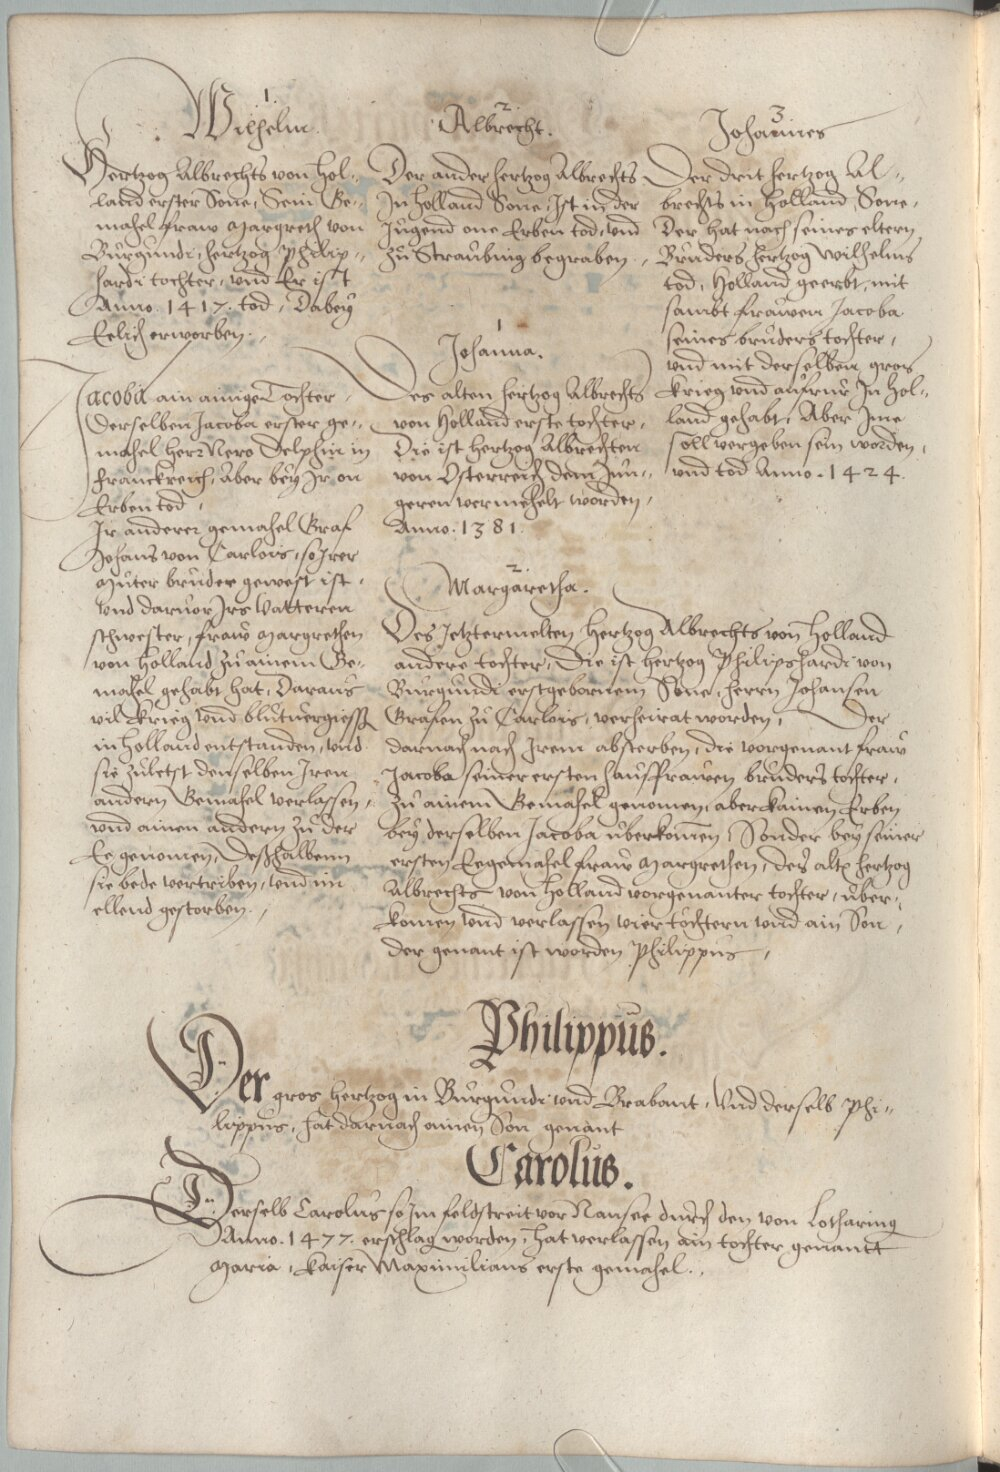 1
Wilhelm.
Hertzog Albrechts von Hol-
land erster Sone, Sein Ge-
mahel fraw Margreth von
Burgundi, hertzog Philip-
hardi tochter, vnd Er ist
Anno. 1417. tod, Dabey
Eelich erworben.
Jacoba ain ainige Tochter,
Derselben Jacoba erster ge-
mahel herr Nero Delphin in
Franckreich, Aber bey Jr on
Erben tod,
Jr anderer gemahel Graf
Johans von Carlois, so Jrer
Muter bruder gewest ist,
Vnd daruor Jrs Vatteren
schwester, fraw Margrethen
von Holland zu ainem Ge-
mahel gehabt hat, Daraus
vil Krieg vnd blutuergiess
in Holland entstanden, vnd
sie zuletst denselben Jren
andern Gemahel verlassen,
vnd ainen andern zu der
Ee genomen, Deßhalbenn
sie bede vertriben, vnd im
ellend gestorben.
2
Albrecht.
Der ander hertzog Albrechts
Jn Holland Sone, Jst in der
Jugend one Erben tod, vnd
zu Straubing begraben.
3
Johannes
Der drit hertzog Al-
brechts in Holland, Sone,
Der hat nach seines eltern
Bruders hertzog Wilhelms
tod, Holland geerbt, mit
sambt frawen Jacoba
seines bruders tochter,
vnd mit derselben gros
Krieg vnd aufrur Jn Hol-
land gehabt, Aber Jme
soll vergeben sein worden,
vnd tod Anno. 1424.
1
Johanna.
Des alten hertzog Albrechts
von Holland erste tochter,
Die ist hertzog Albrechten
von Osterreich dem Jun-
geren vermehelt worden,
Anno. 1381.
2
Margaretha.
Des Jetztermelten Hertzog Albrechts von Holland
andere tochter, Die ist hertzog Philipshardi von
Burgundi erstgebornem Sone, herrn Johansen
Grafen zu Carlois, verheirat worden, Der
darnach nach Jrem absterben, die vorgenant fraw
Jacoba seiner ersten hausfrawen bruders tochter,
zu ainem Gemahel genomen, aber kainen Erben
bey derselben Jacoba uberkomen, Sonder bey seiner
ersten Eegemahel fraw Margrethen, des altn hertzog
Albrechts von Holland vorgenanter tochter, uber-
komen vnd verlassen vier tochtern vnd ain Son,
der genant ist worden Philippus,
Philippus.
Der gros hertzog in Burgundi vnd Brabant, Vnd derselb Phi-
lippus, hat darnach ainen Son genant
Carolus.
Derselb Carolus so Jm feldstreit vor Nansee durch den von Lotharing
Anno. 1477. erschlag worden, hat verlassen ain tochter genantt
Maria, Kaiser Maximilians erste gemahel.